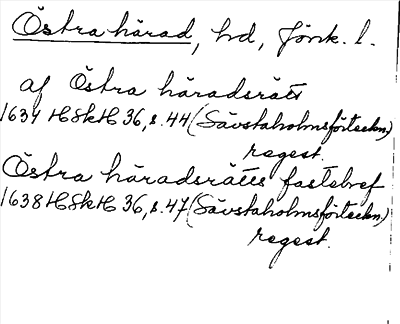 Östra härad, hd, Jönk. l.
af Östra häradsrätt
1634 HSkH 36, s. 44 (Sävstaholmsförteckn.)
regest.
Östra häradsrätts fastebref
1638 HSkH 36, s. 47 (Sävstaholmsförteckn.)
regest.